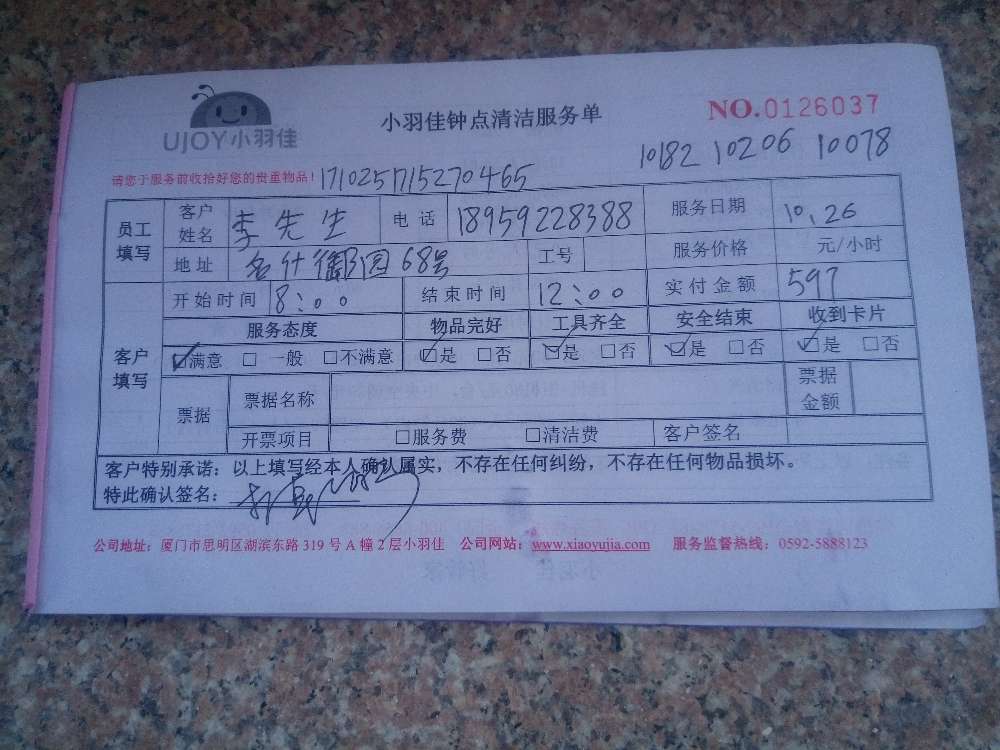 UJOY小羽佳
小羽佳钟点清洁服务单
NO.0126037
10182 10206 10078
请您于服务前收拾好您的贵重物品! 171025171527046​5
员工填写 客户姓名 李先生 电话 18959228388 服务日期 10.26
地址 名仕御园68号 工号 服务价格 元/小时
客户填写 开始时间 8:00 结束时间 12:00 实付金额 597
服务态度 物品完好 工具齐全 安全结束 收到卡片
☑满意 □ 一般 □不满意 ☑是 □否 ☑是 □否 ☑是 □否 ☑是 □否
票据 票据名称 票据金额
开票项目 □服务费 □清洁费 客户签名
客户特别承诺:以上填写经本人确认属实,不存在任何纠纷,不存在任何物品损坏。
特此确认签名:
公司地址:厦门市思明区湖滨东路 319 号 A 幢 2 层小羽佳 公司网站:www.xiaoyujia.com 服务监督热线:0592-5888123